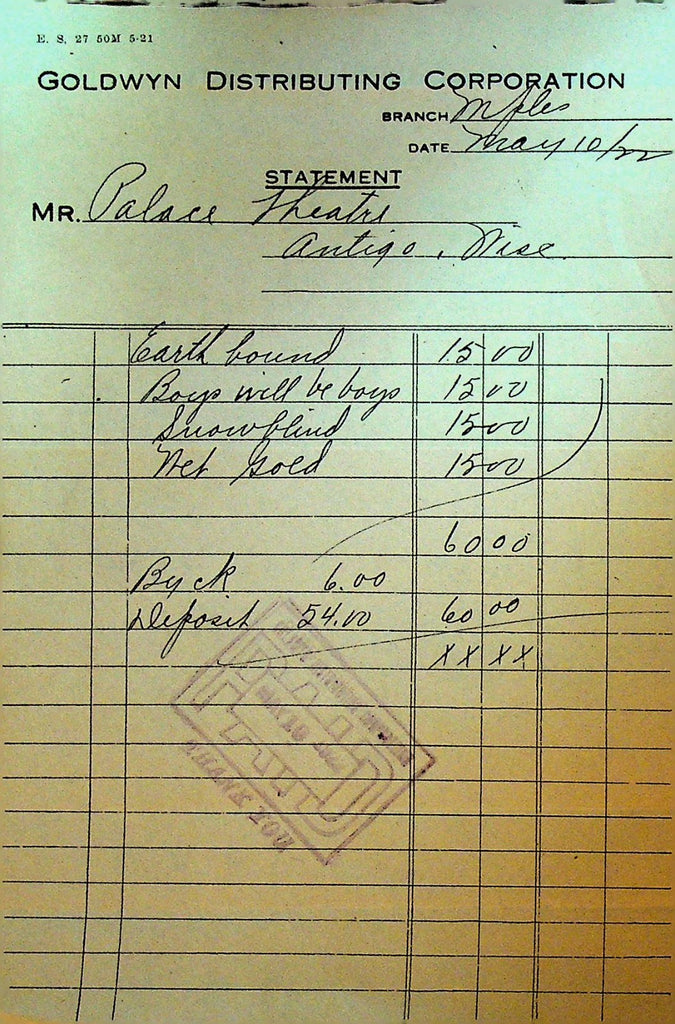 E. S. 27 50M 5-21
GOLDWYN DISTRIBUTING CORPORATION
BRANCH Mpls
DATE May 10/22
STATEMENT
MR. Palace Theatre
Antigo, Wisc.
Earth bound 15 00
Boys will be boys 15 00
Snowblind 15 00
6000
By ck 6.00
Deposit 54.00 60 00
X X X X
PAID
MAY 10
THANK YOU